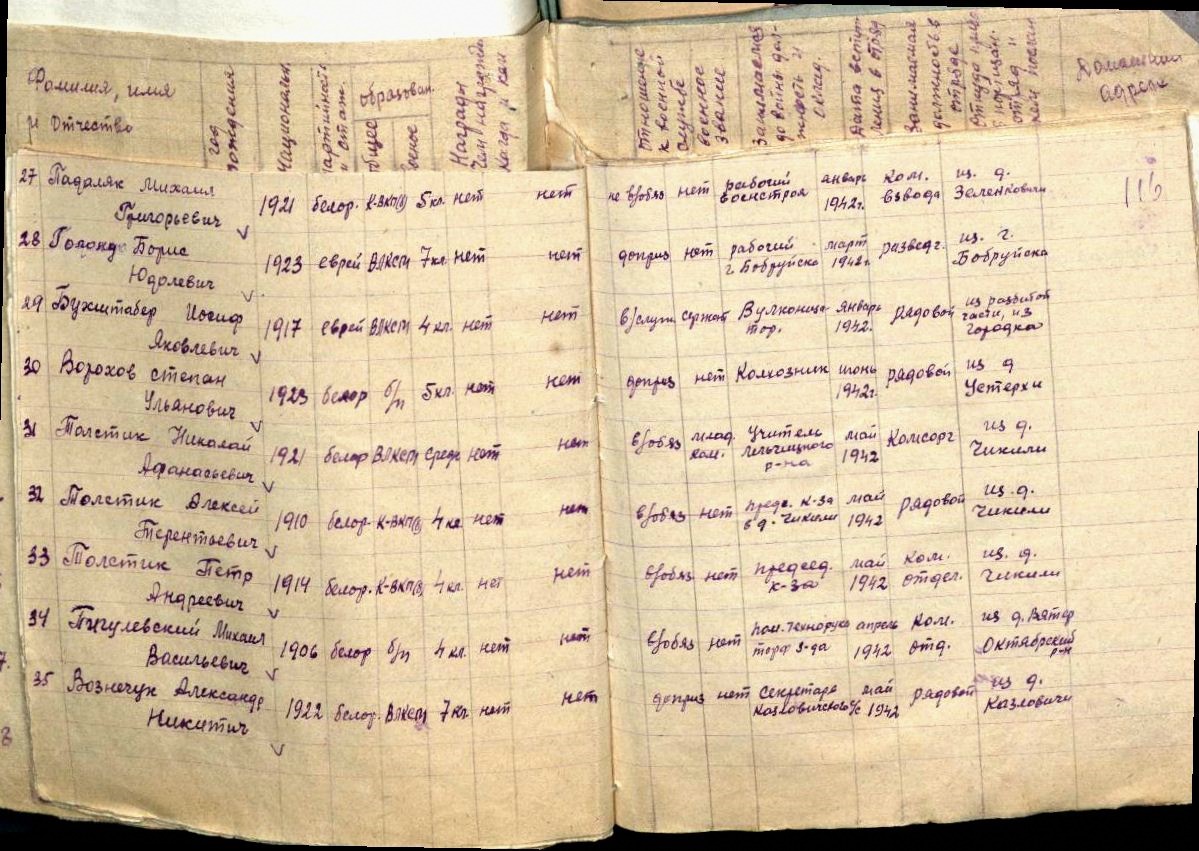 Фамилия, имя
и Отчество
год рождения
Национальн.
партийность и стаж.
образован.
общее
военное
Награды чем награжден когда и кем
отношение к военной службе
военное звание
Занимаемая до войны должность и
Дата вступления в отряд
Занимаемая должность в отряде
отряд и
Домашний
адрес
116
27 Падаляк Михаил 1921 белор. К-ВКП(б) 5 кл. нет нет не в/обяз нет рабочий январь ком. из. д.
Григорьевич военстроя 1942г. взвода Зеленковичи
28 Борис 1923 еврей ВЛКСМ 7 кл. нет нет доприз нет рабочий март разведг. из. г.
Юдолевич г. Бобруйска 1942г. Бобруйска
29 Бухштабер Иосиф 1917 еврей ВЛКСМ 4 кл. нет нет в/служ сержант Вулканиза- январь рядовой из разбитой
Яковлевич тор. 1942. части, из
городка
30 Ворохов степан 1923 белор б/п 5 кл. нет нет доприз нет Колхозник июнь рядовой из д
Ульянович 1942г. Устерхи
31 Толстик Николай 1921 белор ВЛКСМ средн нет нет в/обяз млад. Учитель май Комсорг из д.
Афанасьевич ком. Лельчицкого 1942 Чикили
р-на
32 Толстик Алексей 1910 белор. К-ВКП(б) 4 кл. нет нет в/обяз нет предс. к-за май рядовой из. д.
Терентьевич в д. Чикили 1942 Чикили
33 Толстик Петр 1914 белор. К-ВКП(б) 4 кл. нет нет в/обяз нет председ. май ком. из. д.
Андреевич к-за 1942 отдел. Чикили
34 Пигулевский Михаил 1906 белор б/п 4 кл. нет нет в/обяз нет пом. технорука апрель ком. из д. Вятер
Васильевич торф з-да 1942 отд. Октябрьский
р-н
35 Вознечук Александр 1922 белор. ВЛКСМ 7 кл. нет нет доприз нет Секретарь май рядовой из д.
Никитич Казловичского с/с 1942 Казловичи